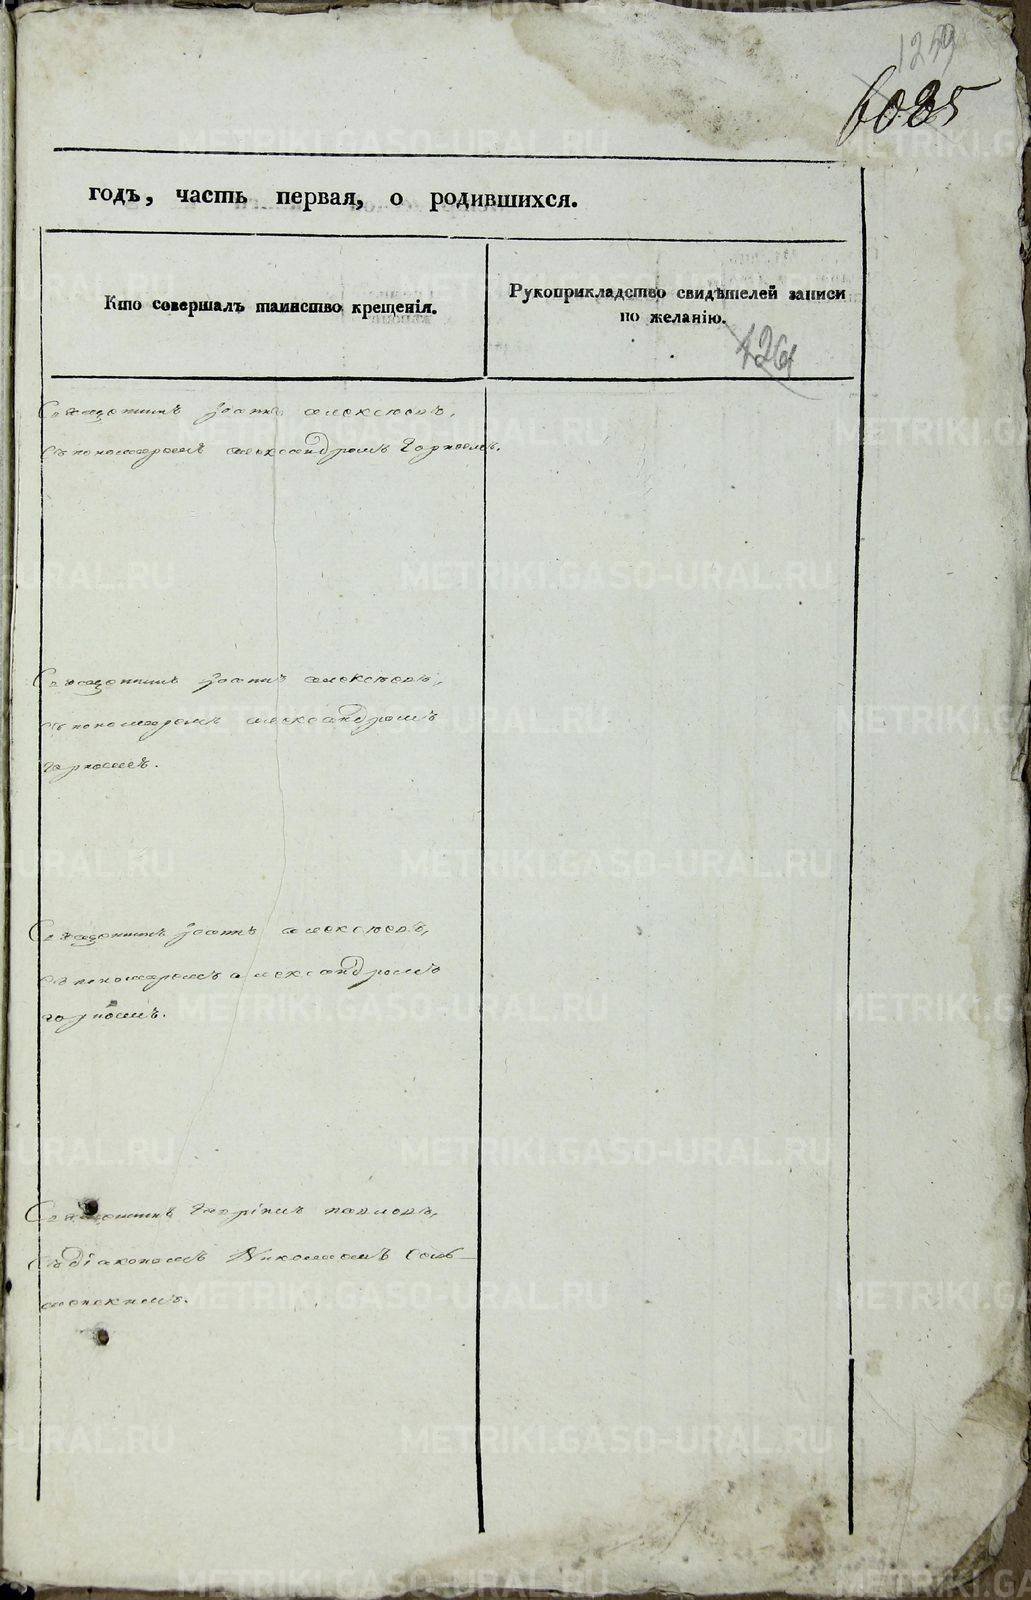 1259
6085
годъ, часть первая, о родившихся.
Кто совершалъ таинство крещенія.
Рукоприкладство свидѣтелей записи
по желанію.
426
Священникъ Іоаннъ Алексѣевъ,
съ пономаремъ Александромъ Горнымъ.
Священникъ Іоаннъ Алексѣевъ,
съ пономаремъ Александромъ
Горнымъ.
Священникъ Іоаннъ Алексѣевъ,
съ пономаремъ Александромъ
Горнымъ.
Священникъ Гавріилъ Павловъ,
съ діакономъ Николаемъ
METRIKI.GASO-URAL.RU